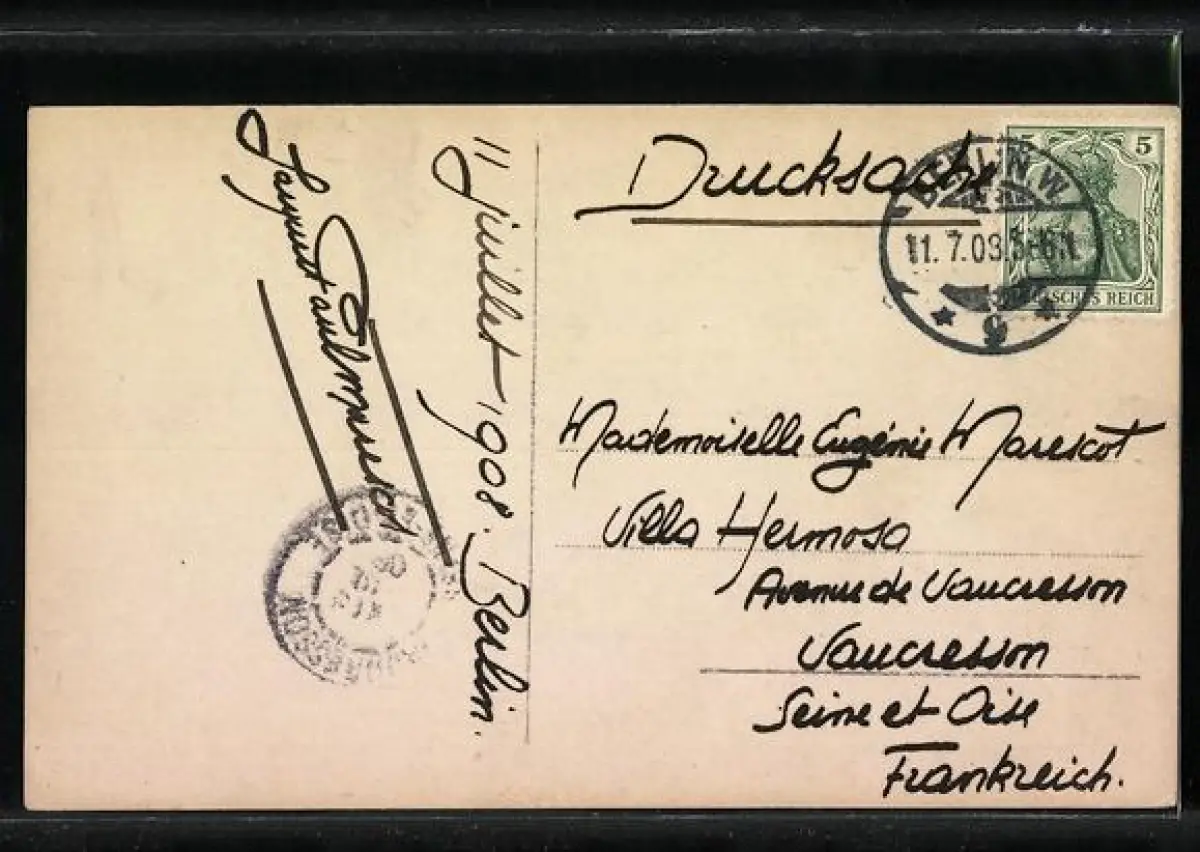 Drucksache
BERLIN W.
11. 7. 08. 5-6 N.
9
5
DEUTSCHES REICH
Mademoiselle Eugénie Marescot
Villa Hermosa
Avenue de Vaucresson
Vaucresson
Seine et Oise
Frankreich.
11 Juillet 1908. Berlin.
VAUCRESSON